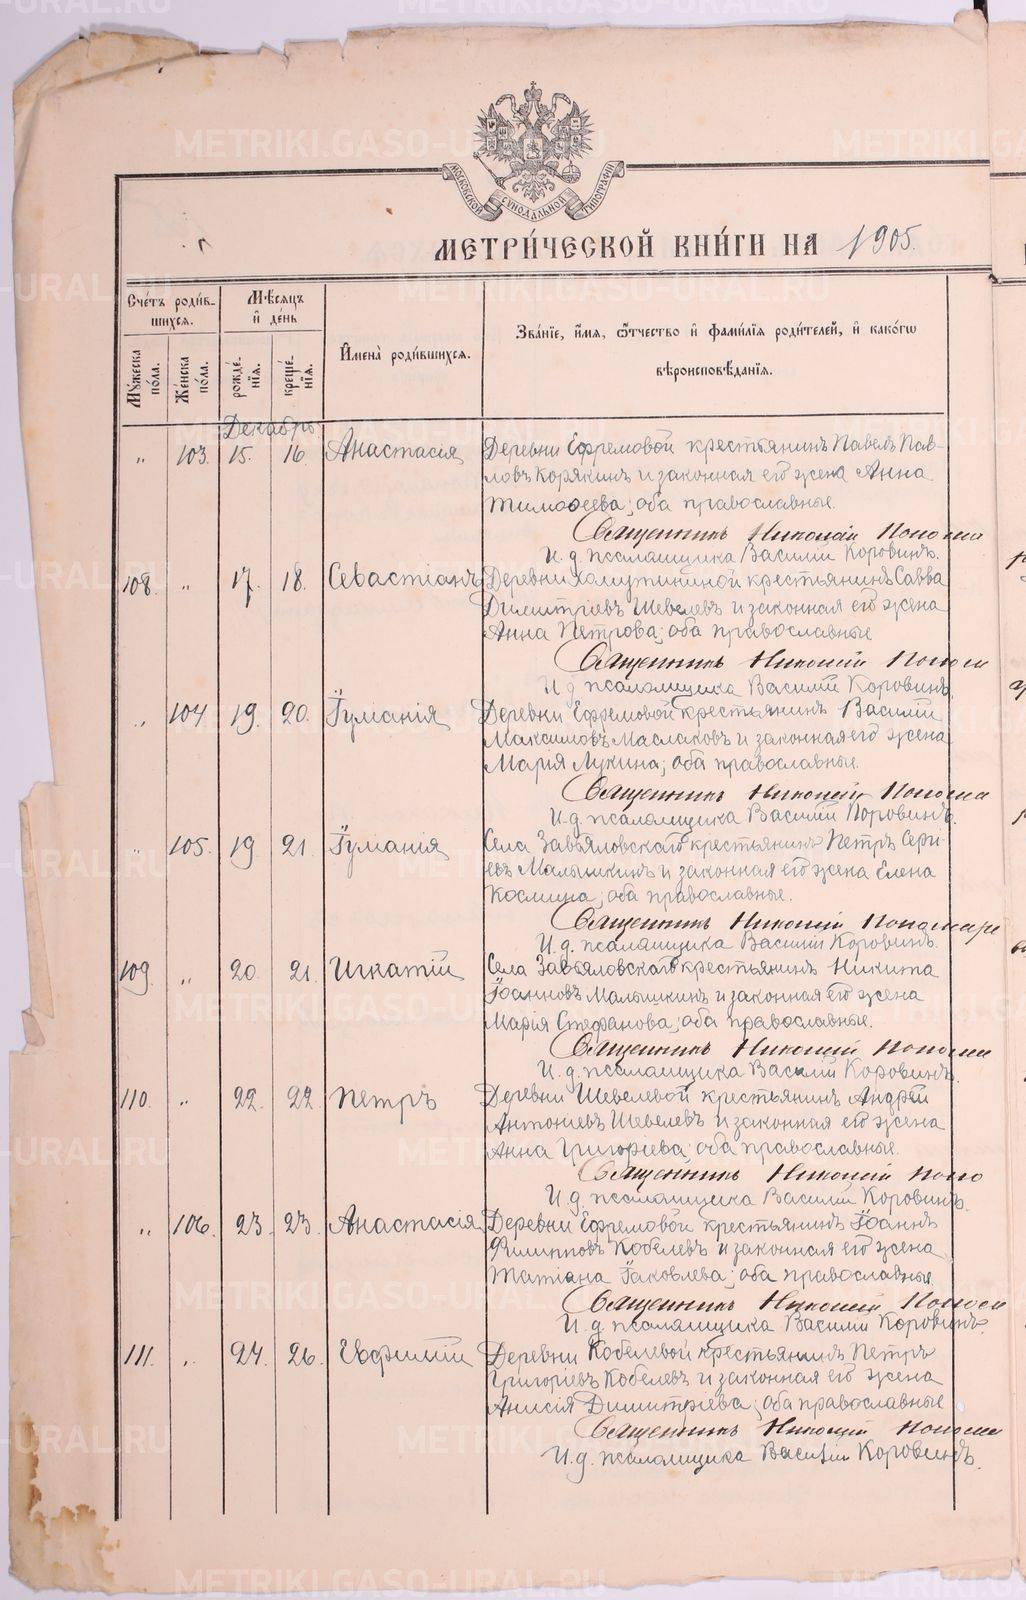 МОСКОВСКОЙ СѴНОДАЛЬНОЙ ТИПОГРАФІИ
МЕТРИ́ЧЕСКОЙ КНИ́ГИ НА 1905.
Сче́тъ роди́в-
шихся.
Мѣ́сяцъ
и҆ де́нь
И҆мена̀ роди́вшихся.
Зва́ніе, и҆́мя, ѻ҆́тчество и҆ фами́лія роди́телей, и҆ како́гѡ
вѣроисповѣ́данія.
Мꙋ́жеска
по́ла.
Же́нска
по́ла.
рожде́-
нія.
креще́-
нія.
Декабрь
„ 103. 15. 16. Анастасія Деревни Ефремовой крестьянинъ Павелъ Пав-
ловъ Корякинъ и законная его жена Анна
Тимоѳеева; оба православные.
Священникъ Николай
И. д. псаломщика Василій Коровинъ.
108. „ 17. 18. Севастіанъ Деревни Хомутининой крестьянинъ Савва
Димитріевъ Шевелевъ и законная его жена
Анна Петрова; оба православные
Священникъ Николай
И. д. псаломщика Василій Коровинъ.
„ 104 19. 20. Іуліанія Деревни Ефремовой крестьянинъ Василій
Максимовъ Маслаковъ и законная его жена
Марія Лукина; оба православные.
Священникъ Николай
И. д. псаломщика Василій Коровинъ.
„ 105. 19 21. Іуліанія Села Завьяловскаго крестьянинъ Петръ Серги-
евъ Малышкинъ и законная его жена Елена
Космина; оба православные.
Священникъ Николай Пономаре
И. д. псаломщика Василій Коровинъ.
109. „ 20 21. Игнатій Села Завьяловскаго крестьянинъ Никита
Іоанновъ Малышкинъ и законная его жена
Марія Стефанова; оба православные.
Священникъ Николай
И. д. псаломщика Василій Коровинъ.
110. „ 22. 22. Петръ Деревни Шевелевой крестьянинъ Андрей
Антоніевъ Шевелевъ и законная его жена
Анна Григоріева; оба православные.
Священникъ Николай Поно
И. д. псаломщика Василій Коровинъ.
„ 106. 23. 23. Анастасія Деревни Ефремовой крестьянинъ Іоаннъ
Филипповъ Кобелевъ и законная его жена
Татіана Іаковлева; оба православные.
Священникъ Николай
И. д. псаломщика Василій Коровинъ.
111. „ 24. 26. Евфимій Деревни Кобелевой крестьянинъ Петръ
Григоріевъ Кобелевъ и законная его жена
Анисія Димитріева; оба православные.
Священникъ Николай
И. д. псаломщика Василій Коровинъ.
METRIKI.GASO-URAL.RU